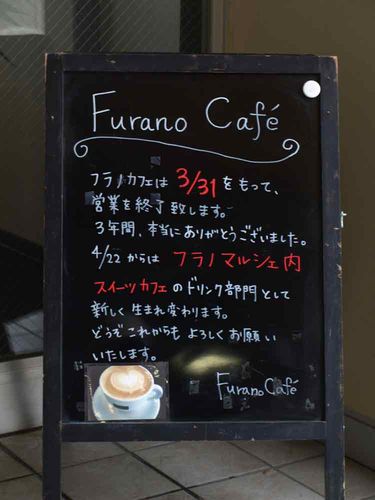 Furano Café
フラノカフェは 3/31 をもって、
営業を終了致します。
3年間、本当にありがとうございました。
4/22 からは フラノマルシェ内
スイーツカフェ のドリンク部門として
新しく生まれ変わります。
どうぞこれからも よろしくお願い
いたします。
Furano Café